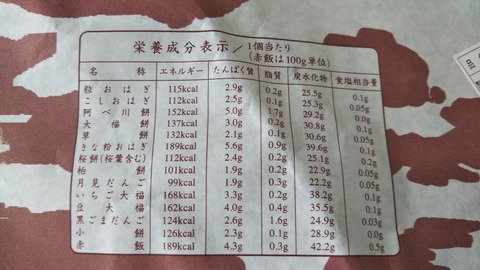 栄養成分表示/1個当たり
(赤飯は100g単位)
名称 エネルギー たんぱく質 脂質 炭水化物 食塩相当量
粒おはぎ 115kcal 2.9g 0.2g 25.5g 0.1g
こしおはぎ 112kcal 2.5g 0.1g 25.3g 0.05g
阿べ川餅 152kcal 5.0g 1.7g 29.2g 0.0g
大福 137kcal 3.0g 0.2g 30.8g 0.1g
草餅 132kcal 2.1g 0.1g 30.6g 0.05g
きな粉おはぎ 189kcal 5.6g 0.9g 39.6g 0.1g
桜餅(桜葉含む) 112kcal 2.4g 0.2g 25.1g 0.2g
柏餅 101kcal 1.9g 0.2g 22.9g 0.05g
月見だんご 99kcal 1.9g 0.3g 22.2g 0.05g
いちご大福 168kcal 3.3g 0.2g 38.2g 0.1g
豆大福 162kcal 4.0g 0.4g 35.5g 0.1g
黒ごまだんご 124kcal 2.6g 1.6g 24.9g 0.03g
小餅 126kcal 2.3g 0.1g 28.9g 0.0g
赤飯 189kcal 4.3g 0.3g 42.2g 0.5g